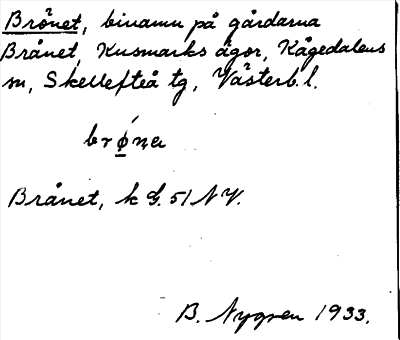 Brönet, binamn på gårdarna
Brånet, Kusmarks ägor, Kågedalens
sn, Skellefteå tg, Västerb. l.
brǿna
Brånet, k G. 51 NV.
B. Nygren 1933.